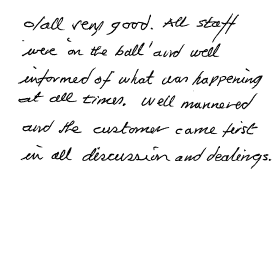 o/all very good. All staff
were 'on the ball' and well
informed of what was happening
at all times. Well mannered
and the customer came first
in all discussion and dealings.